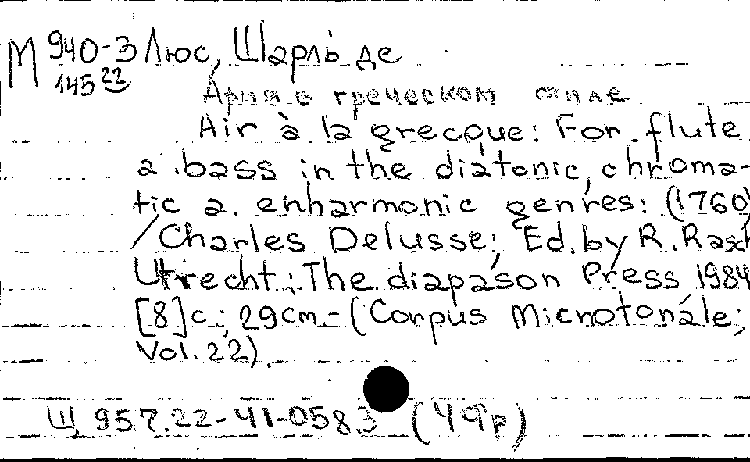 М 940-3 Люс, Шарль де
145 22
Ария в греческом стиле
Air à la grecque: For flute
a. bass in the diatonic, chroma-
tic a. enharmonic genres: (1760)
/Charles Delusse; Ed. by R. Rasch
Utrecht: The diapason Press 1984
[8]с.; 29cm.-(Corpus Microtonále;
Vol. 22).
Щ 957.22-41-0583 (49р)